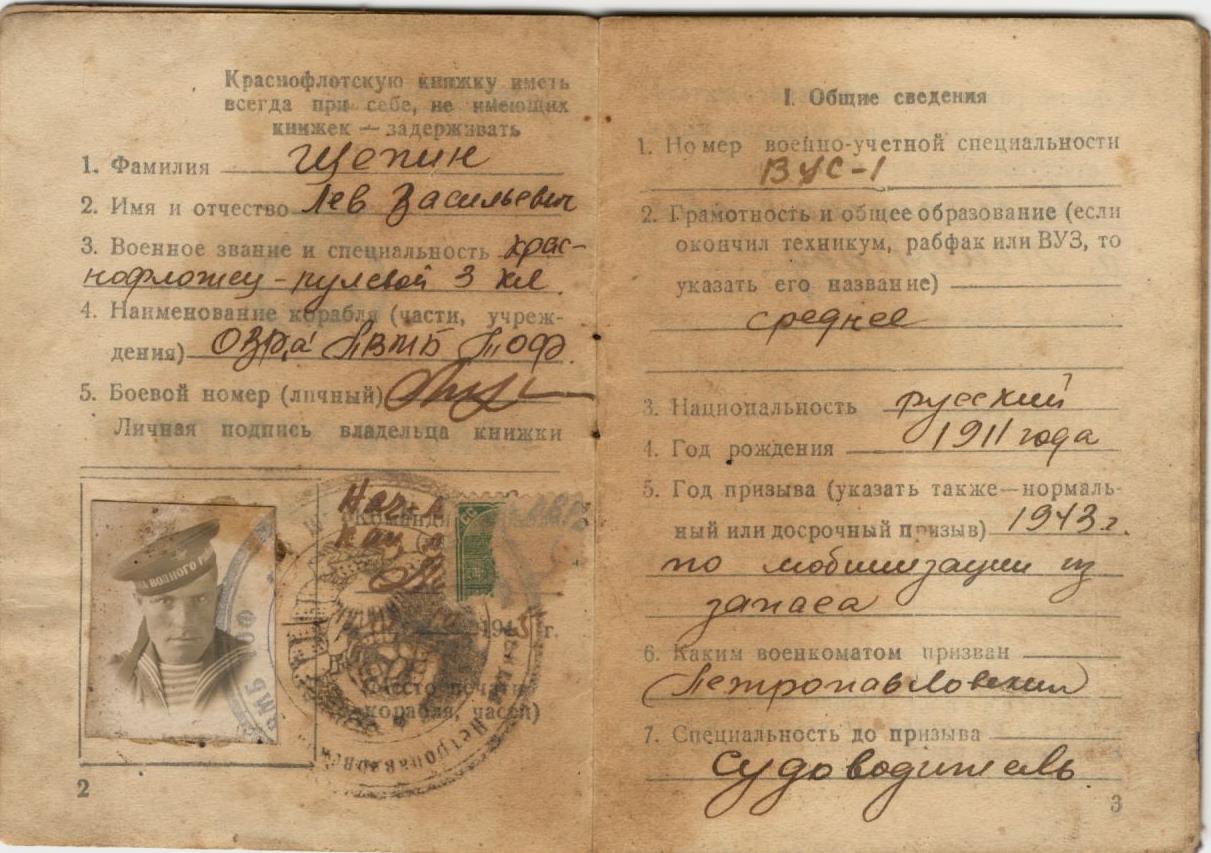 Краснофлотскую книжку иметь
всегда при себе, не имеющих
книжек — задерживать
1. Фамилия Щепин
2. Имя и отчество Лев Васильевич
3. Военное звание и специальность крас-
нофлотец - рулевой 3 кл.
4. Наименование корабля (части, учреж-
дения) ОЗРа ПВМБ ТОФ
5. Боевой номер (личный)
Личная подпись владельца книжки
Нач.
Команди
194 г.
(Место печати
корабля, части)
Петропавловс
ВМБ
2
I. Общие сведения
1. Номер военно-учетной специальности
ВУС-1
2. Грамотность и общее образование (если
окончил техникум, рабфак или ВУЗ, то
указать его название)
среднее
3. Национальность русский
4. Год рождения 1911 года
5. Год призыва (указать также—нормаль-
ный или досрочный призыв) 1943 г.
по мобилизации из
запаса
6. Каким военкоматом призван
Петропавловским
7. Специальность до призыва
судоводитель
3